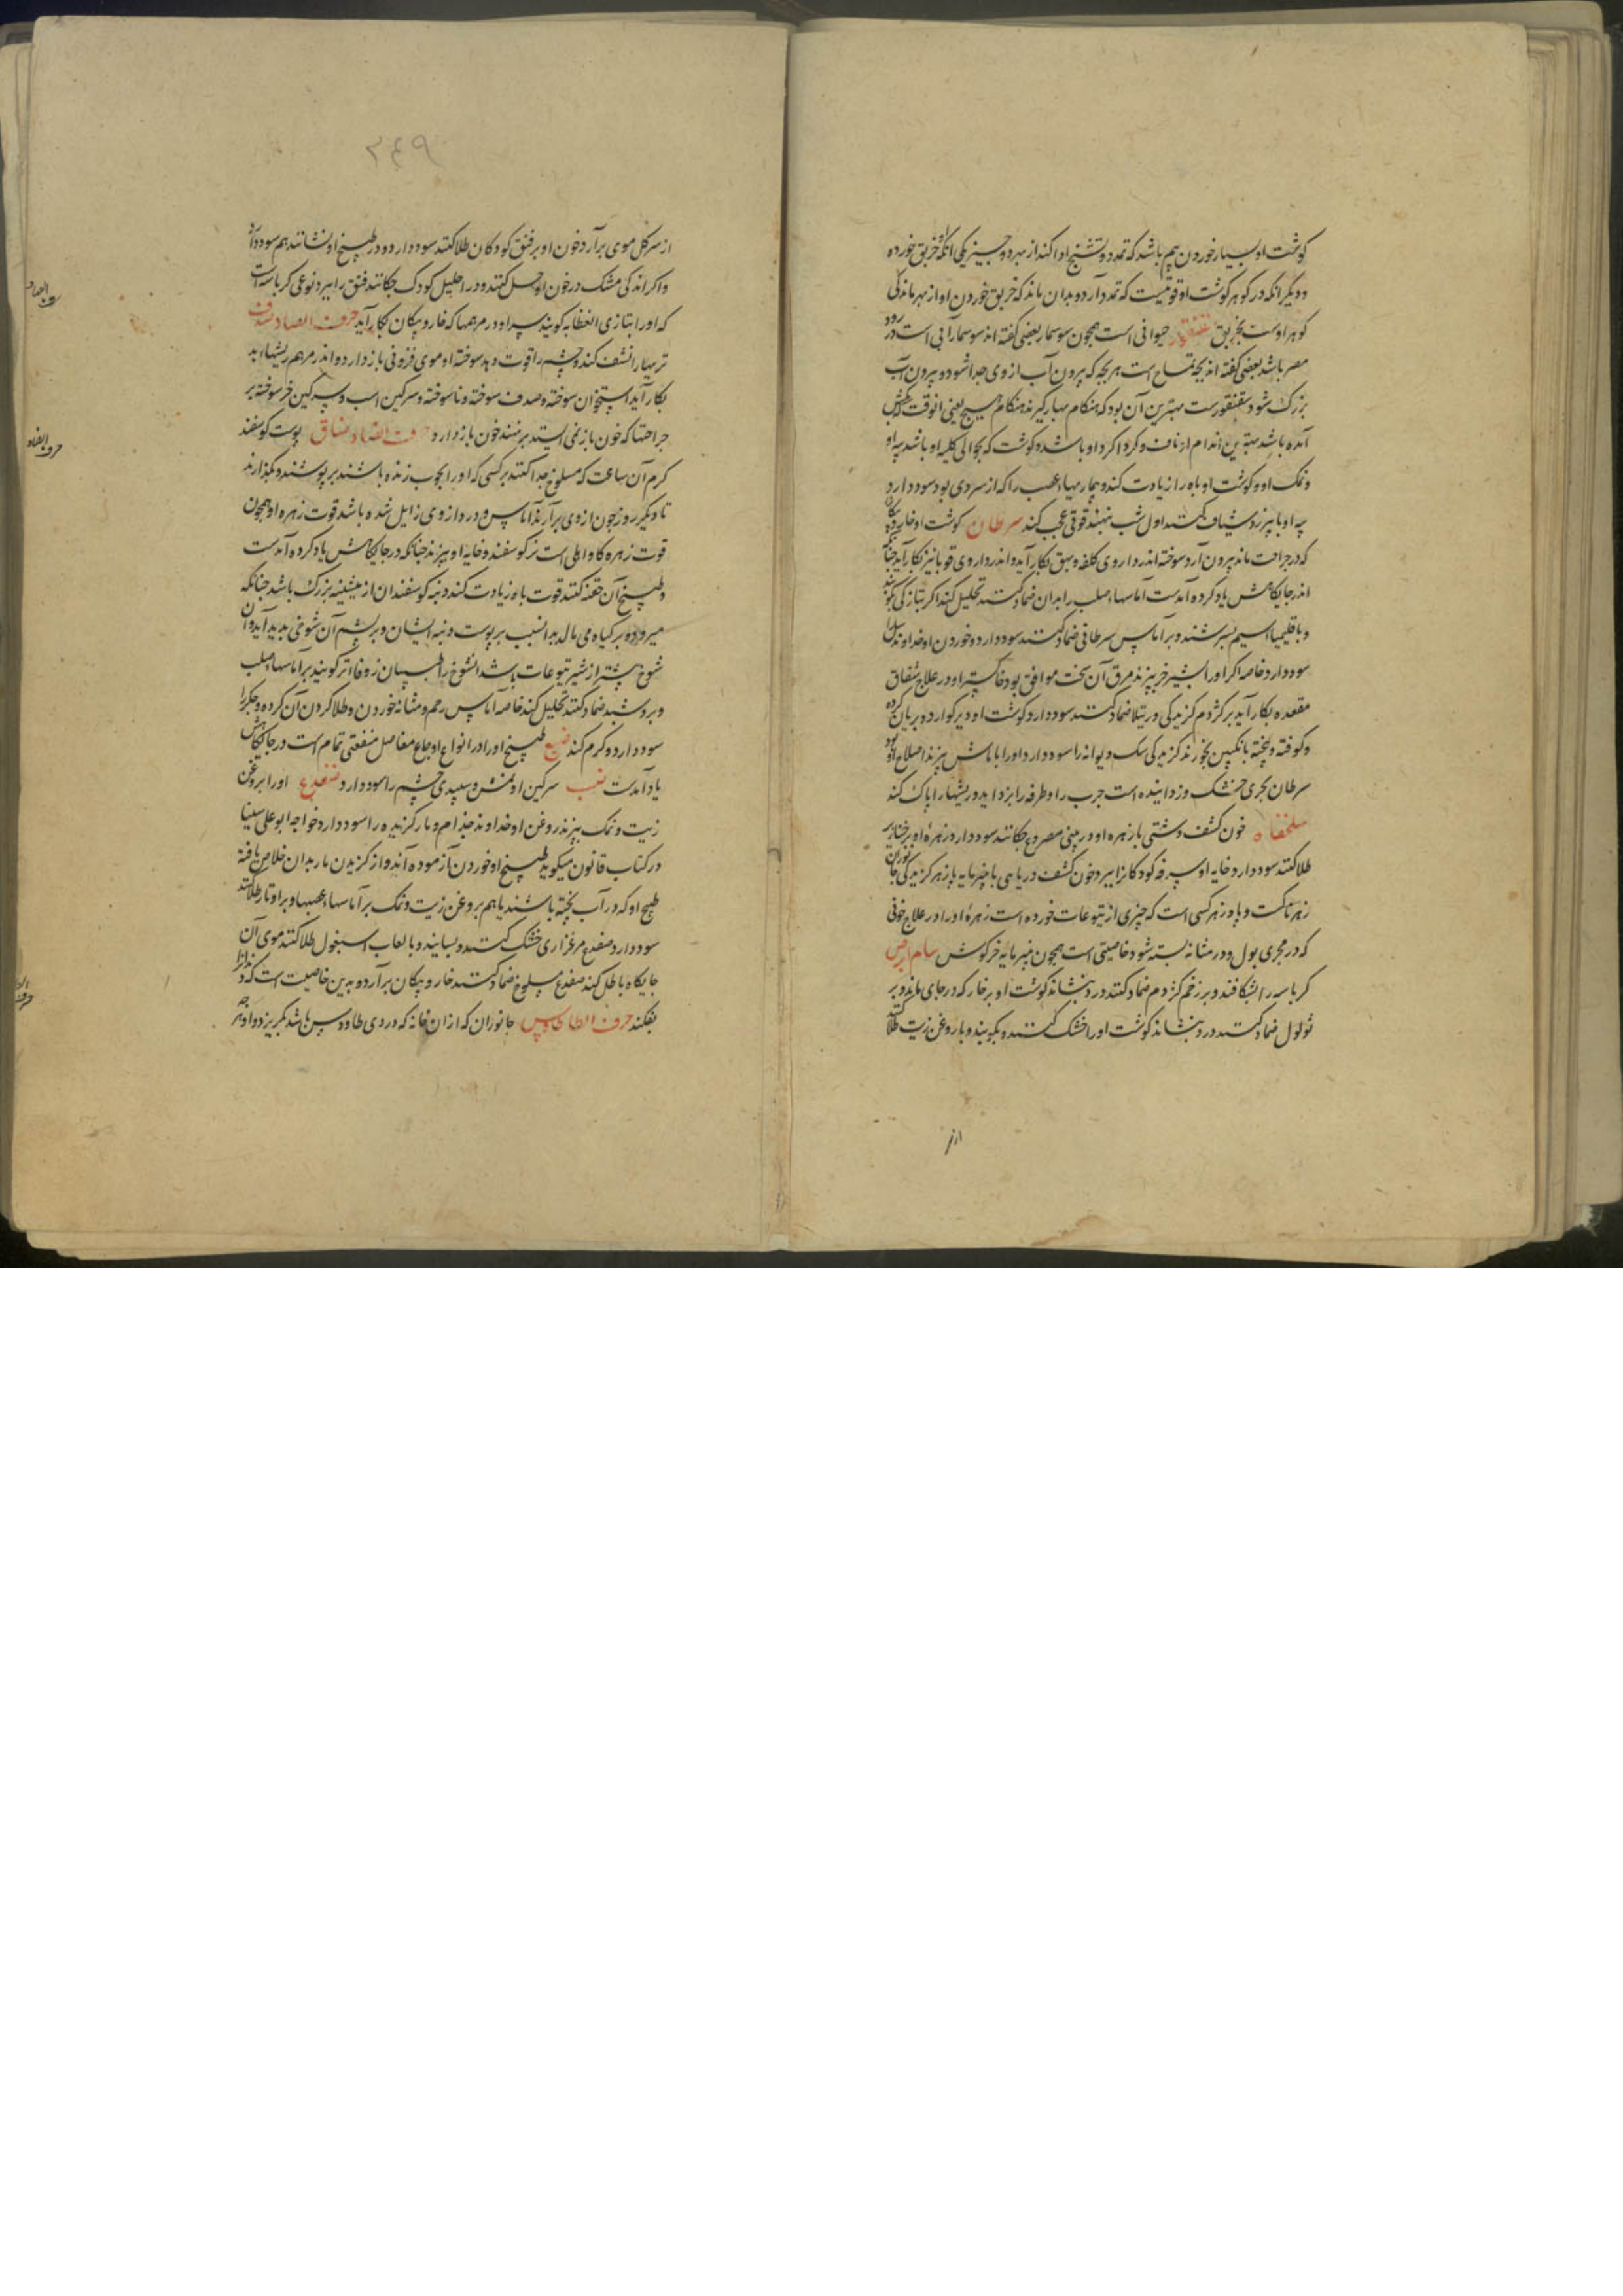 گوشت او بسیار خوردن بیم باشد که تمدد و تشنج اداکند از بهر دو چیز یکی آنکه او خربق خورده
و دیگر آنکه در گوهر گوشت او قوتیست که تمدد آرد و بدان ماند که خربق خوردن او از بهر مانندگی
گوهر اوست بخربق سقنقور حیوانی است همچون سوسمار بعضی گفته اند سوسمار آبی است در رود
مصر باشد بعضی گفته اند بچه تمساح است هر بچه که بیرون آب از وی جدا شود و بیرون آب
بزرک شود سقنقورست بهترین آن بود که هنکام بهار کیرند هنکام هیج یعنی انوقت که
آمده باشد بهترین اندام او ناف و کرداکرد او باشد و کوشت که بحوالی کلیه او باشد پیه او
و نمک او و کوشت او باه را زیادت کند و بیماریهاء عصب را که از سردی بود سود دارد
پیه او شیاف کنند اول شب بنهند قوتی عجب کند سرطان کوشت او خار و پیکان
که در جراحت ماند بیرون آرد سوخته اندر داروی کلفه و بهق بکار آید و اندر داروی قوبا نیز بکار آید چنانکه
اندر جایکاهش یاد کرده آمدست آماسهاء صلب را بدان ضماد کنند تحلیل کند اکر بتازکی بکوبند
و با قلیمیا سیم بسرشند و بر آماس سرطانی ضماد کنند سود دارد و خوردن او خداوند سل را
سود دارد خاصه اکر او را بشیر خر بپزند مرق آن سخت موافق بود خاکستر او در علاج شقاق
مقعده بکار آید بر کژدم کزیدکی و رتیلا ضماد کنند سود دارد کوشت او دیر کوارد و بریان کرده
و کوفته و پخته بانکبین بخورند کزیدکی سک دیوانه را سود دارد و او را با ماش بپزند اصلاح او بود
سرطان بحری خشک و زداینده است جرب را و طرفه را بزداید و ریشها را پاک کند
سلحفاه خون کشف دشتی با زهره او در بینی مصروع چکانند سود دارد و زهره او بر خنازیر
طلا کنند سود دارد خایه او سرفه کودکان را ببرد خون کشف دریایی با پنیرمایه پازهر کزیدکی جانوران
زهرناکست و پادزهر کسی است که چیزی از یتوعات خورده است زهره او را در علاج خونی
که در مجری بول و در مثانه بسته شود خاصیتی است همچون پنیرمایه خرکوش سام ابرص
کرباسه را بشکافند و بر زخم کژدم ضماد کنند درد بنشاند کوشت او بر خار که در جای ماند و بر
ثولول ضماد کنند درد بنشاند کوشت او را خشک کنند و بکوبند و با روغن زیت طلا کنند
از سر
۲۴۹
از سر کل موی برآرد خون او بر فتق کودکان طلا کنند سود دارد و در طبیخ او نشانند هم سود دارد
و اکر اندکی مشک در خون او حل کنند و در احلیل کودک چکانند فتق را ببرد نوعی کرباسه است
که او را بتازی العظایه کویند سر او در مرهمها که خار و پیکان بکار آید حرف الصاد صدف
تریها را نشف کند و چشم را قوت دهد سوخته او موی فزونی باز دارد و اندر مرهم ریشهاء بد
بکار آید استخوان سوخته و صدف سوخته و ناسوخته و سرکین اسب و سرکین خر سوخته بر
جراحتها که خون باز نمی ایستد برنهند خون باز دارد حرف الضاد ضاق پوست کوسفند
کرم آن ساعت که مسلوخ جدا کنند بر کسی که او را بچوب زده باشند بر پوشند و بکذارند
تا دیکر روز چون از وی برآرند آماس و درد از وی زایل شده باشد قوت زهره او همچون
قوت زهره کاو اهلی است نر کوسفند و خایه او بپزند چنانکه در جایکاهش یاد کرده آمدست
و طبیخ آن حقنه کنند قوت باه زیادت کند دنبه کوسفندان از میشینه بزرک باشد چنانکه
میرود بر کیاه می مالد بدانسبب بر پوست دنبه ایشان و بر پشم آن شوخی پدید آید و آن
شوخ بیشتر از شیر یتوعات باشد انشوخ را طبیبان زوفا تر کویند بر آماسهاء صلب
ضماد کنند تحلیل کند خاصه آماس رحم و مثانه خوردن و طلا کردن آن کرده و جکر را
سود دارد و کرم کند ضبع طبیخ او را در انواع اوجاع مفاصل منفعتی تمام است در جایکاهش
یاد آمدست ضب سرکین او نمش و سپیدی چشم را سود دارد ضفدع او را بروغن
زیت و نمک بپزند روغن او خداوند جذام و مار کزیده را سود دارد خواجه ابوعلی سینا
در کتاب قانون میکوید طبیخ او خوردن آزموده آند و از کزیدن مار بدان خلاص یافته
طبیخ او که در آب پخته باشند یا هم بروغن زیت و نمک بر آماسهاء عصبها و بر اوتار طلا کنند
سود دارد ضفدع مرغزاری خشک کنند و بسایند و با لعاب اسبغول طلا کنند موی آن
جایکاه باطل کند ضفدع مسلوخ ضماد کنند خار و پیکان برآرد و بدین خاصیت است که دندان را
بفکند حرف الطا طاوس جانوران که از آن خانه که در وی طاووس باشد بکریزد و او
حرف الصاد
حرف الضاد